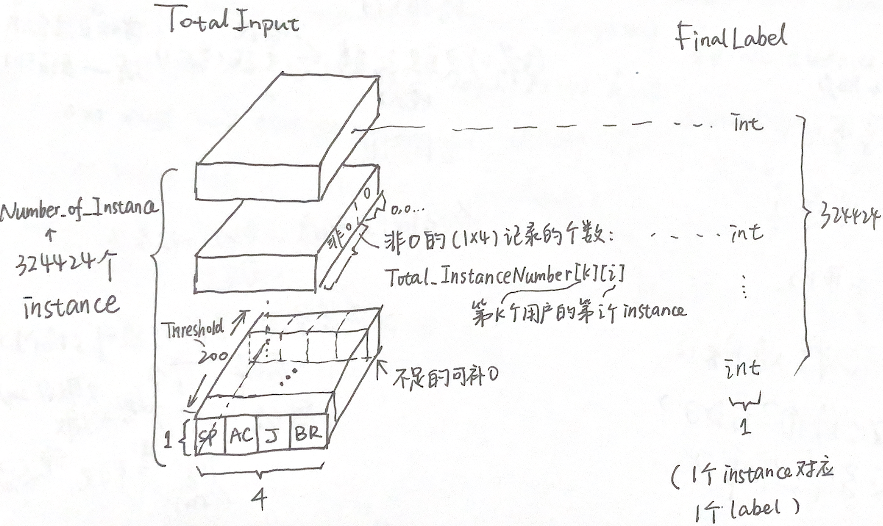 Total Input
Final Label
int
Number_of_Instance
324424个
instance
非0
0
0,0...
非0的(1×4)记录的个数:
int
324424
Total_InstanceNumber[k][i]
第k个用户的第i个instance
Threshold
200
不足的可补0
int
1
SP AC J BR
4
1
(1个instance对应
1个label)